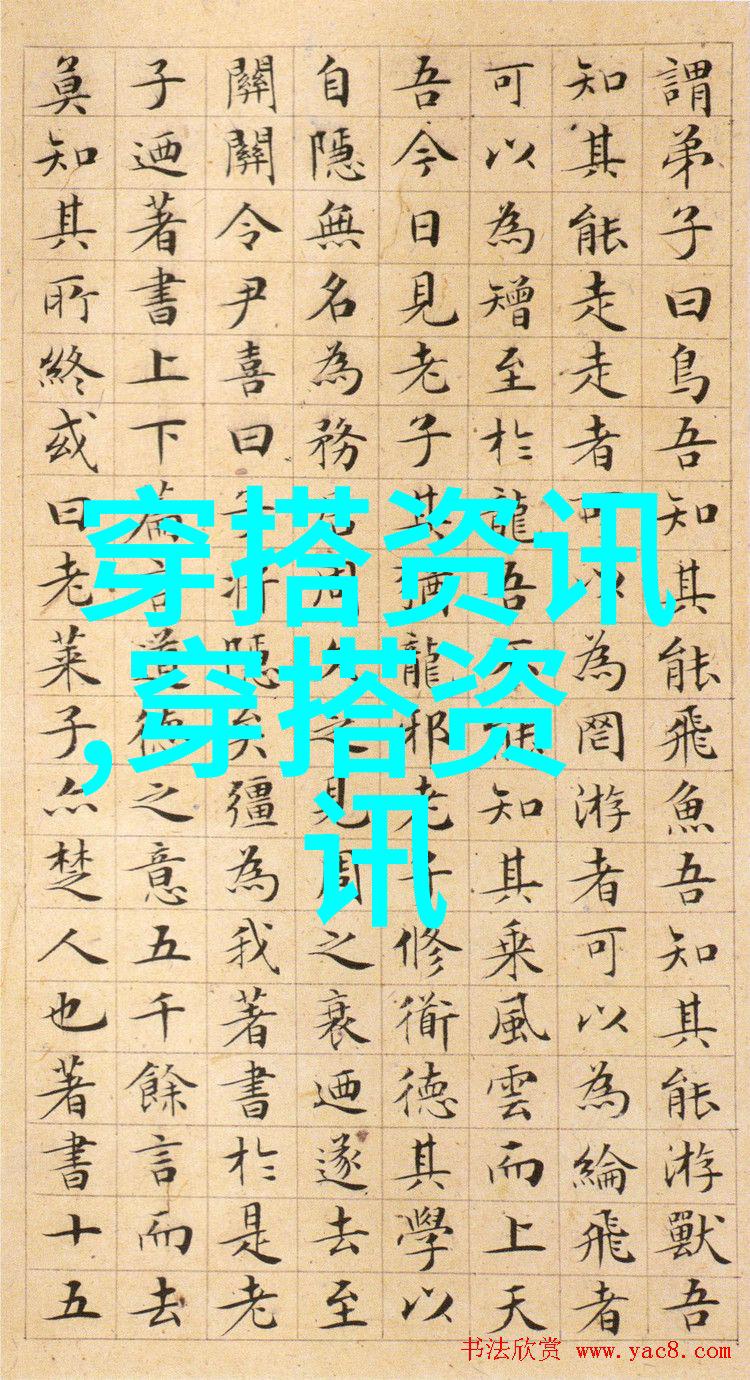 謂弟子曰鳥吾知其能飛魚吾知其能游獸吾
知其能走走者可以為罔游者可以為綸飛者
可以為矰至於龍吾不能知其乘風雲而上天
吾今日見老子其猶龍邪老子修衜德其學以
自隱無名為務居周久之見周之衰迺遂去至
關關令尹喜曰子將隱矣彊為我著書於是老
子迺著書上下篇言道德之意五千餘言而去
莫知其所終或曰老萊子亦楚人也著書十五
穿搭资讯
,穿搭资
讯
书法欣赏 www.yac8.com